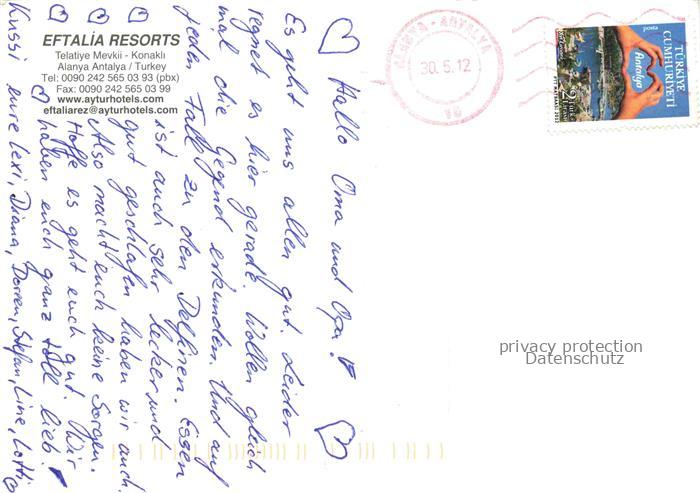 EFTALİA RESORTS
Telatiye Mevkii - Konaklı
Alanya Antalya / Turkey
Tel: 0090 242 565 03 93 (pbx)
Fax: 0090 242 565 03 99
www.ayturhotels.com
eftaliarez@ayturhotels.com
Hallo Oma und Opa!
Es geht uns allen gut. Leider
regnet es hier gerade. Wollen gleich
mal die Gegend erkunden. Und auf
jeden Fall zu den Delfinen. Essen
ist auch sehr lecker und
gut geschlafen haben wir auch.
Also macht euch keine Sorgen.
Hoffe es geht euch gut. Wir
haben euch ganz toll lieb
Kussi eure Lexi, Diana, Doreen, Stefan, Line, Lotti
ALANYA - ANTALYA
30.5.12
TÜRKİYE
CUMHURİYETİ
posta
Antalya
privacy protection
Datenschutz